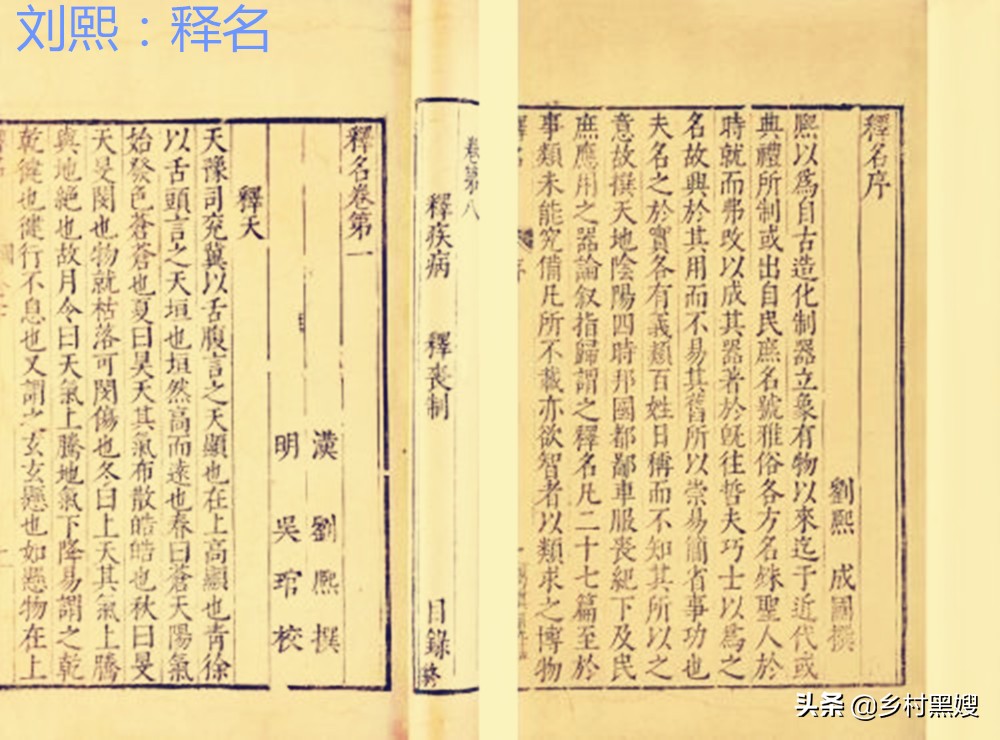 刘熙：释名
釋名序
劉熙 成國撰
熙以爲自古造化制器立象有物以來迄于近代或
典禮所制或出自民庶名號雅俗各方名殊聖人於
時就而弗改以成其器著於旣往哲夫巧士以爲之
名故興於其用而不易其舊所以崇易簡省事功也
夫名之於實各有義類百姓日稱而不知其所以之
意故撰天地陰陽四時邦國都鄙車服喪紀下及民
庶應用之器論叙指歸謂之釋名凡二十七篇至於
事類未能究備凡所不載亦欲智者以類求之博物
卷第八
釋疾病 釋喪制
目錄終
釋名卷第一
漢 劉熙撰
明 吳琯校
釋天
天豫司兖冀以舌腹言之天顯也在上高顯也青徐
以舌頭言之天垣也垣然高而遠也春曰蒼天陽氣
始發色蒼蒼也夏曰昊天其氣布散皓皓也秋曰旻
天旻閔也物就枯落可閔傷也冬曰上天其氣上騰
與地絶也故月令曰天氣上騰地氣下降易謂之乾
乾健也健行不息也又謂之玄玄懸也如懸物在上
头条 @乡村黑嫂